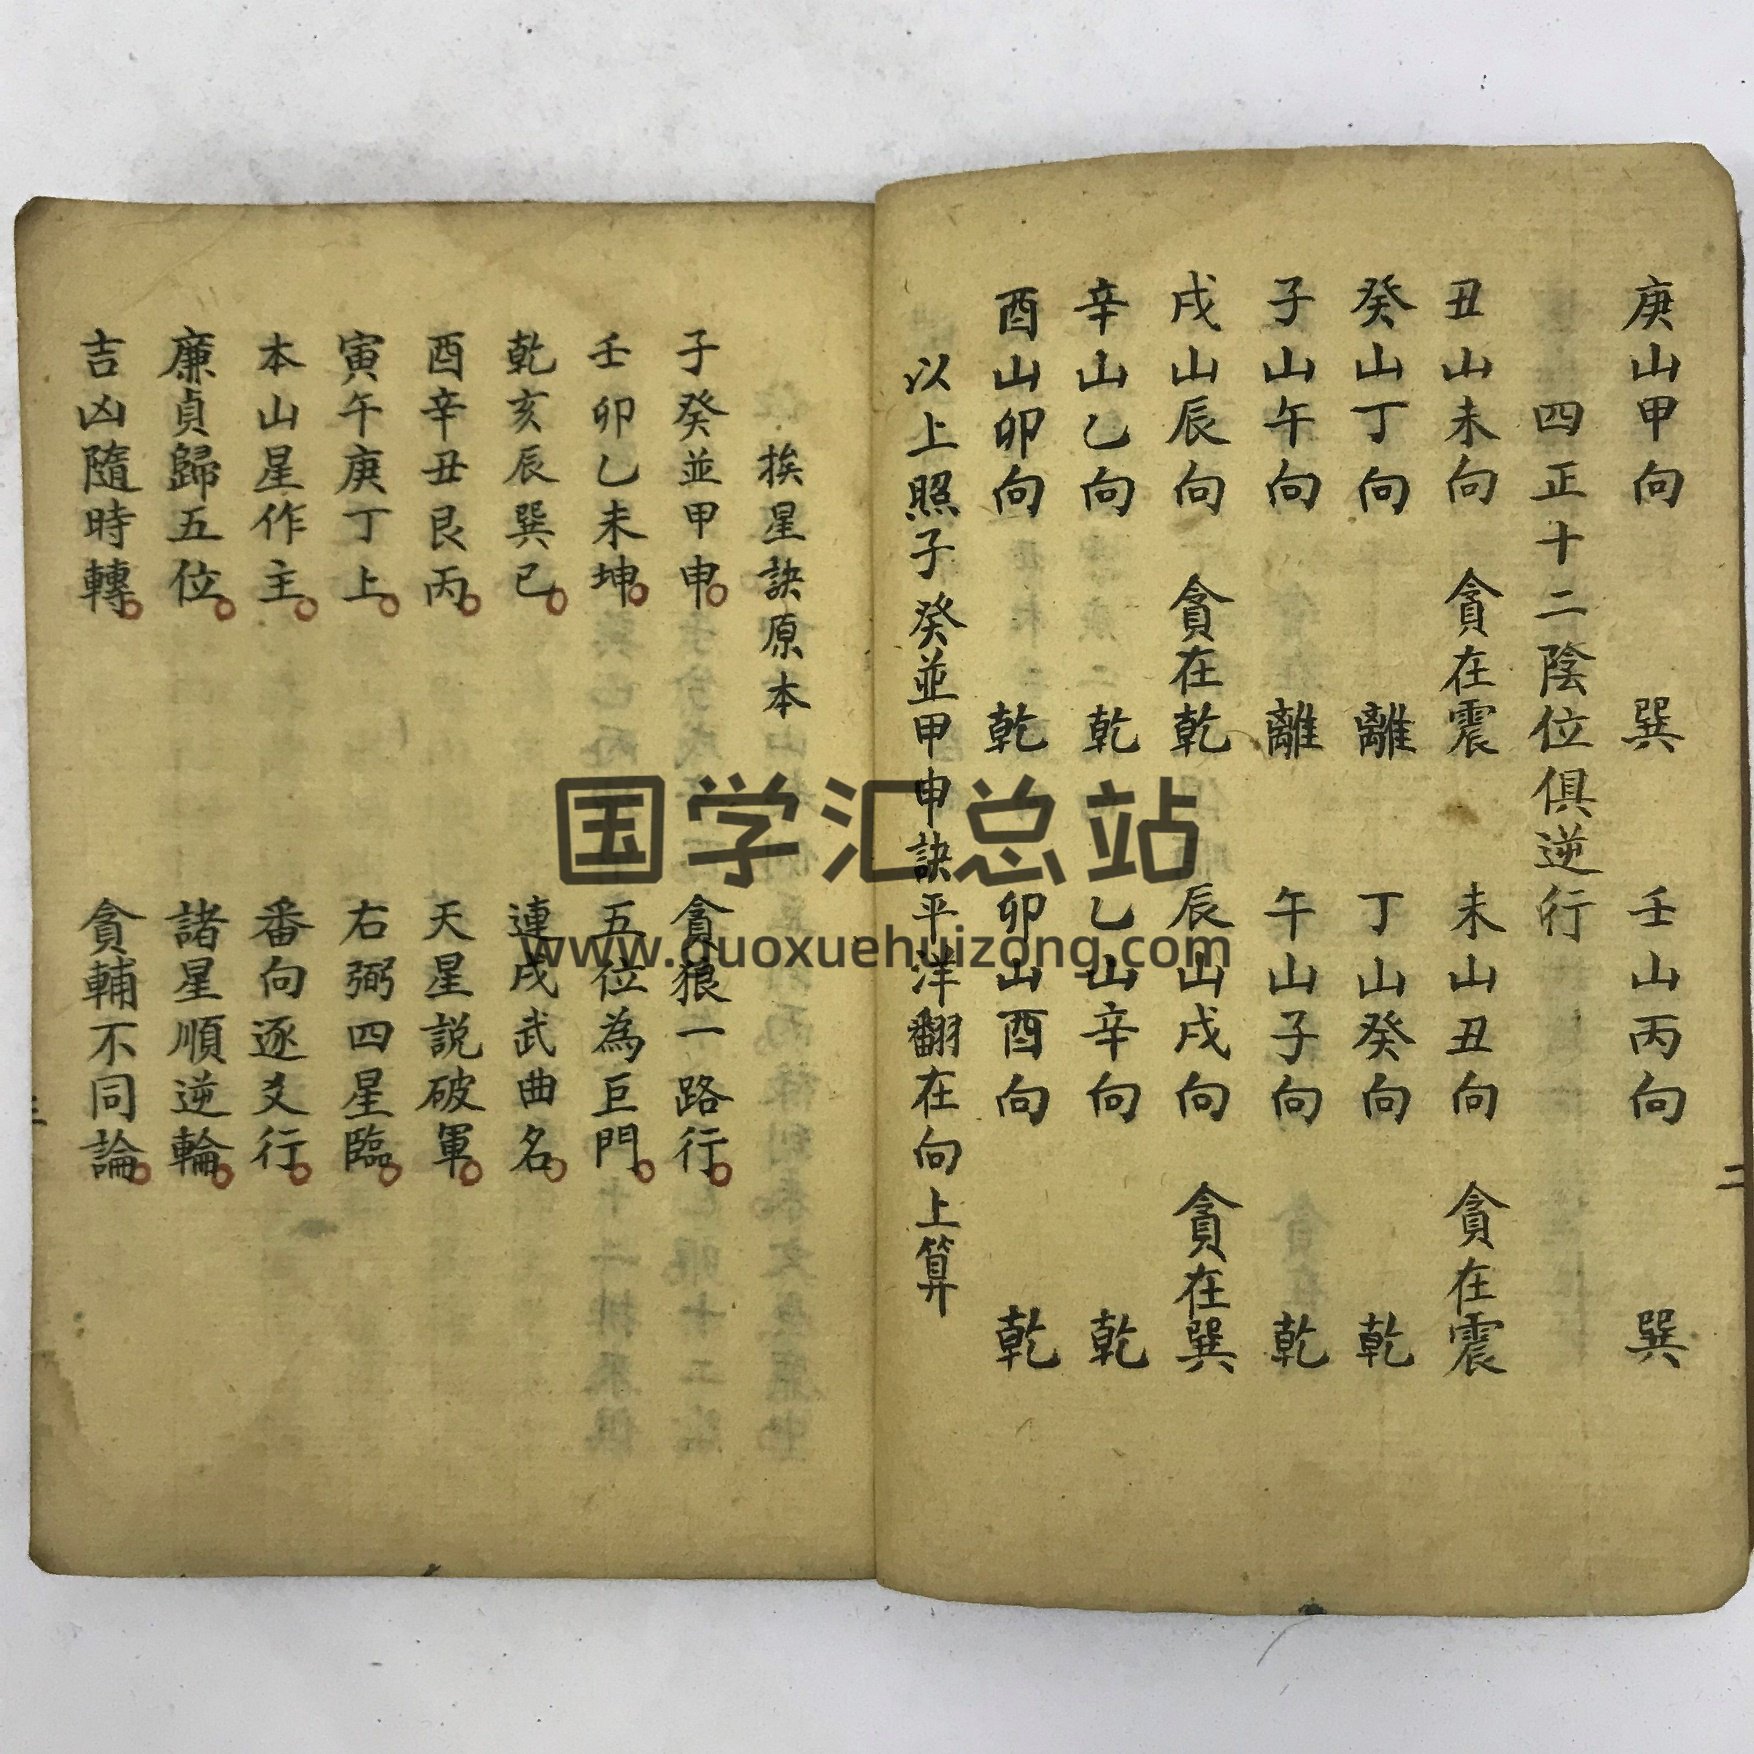 庚山甲向 巽 壬山丙向 巽
四正十二陰位俱逆行
丑山未向 貪在震 未山丑向 貪在震
癸山丁向 離 丁山癸向 乾
子山午向 離 午山子向 乾
戌山辰向 貪在乾 辰山戌向 貪在巽
辛山乙向 乾 乙山辛向 乾
酉山卯向 乾 卯山酉向 乾
以上照子癸並甲申訣平洋翻在向上算
二
挨星訣原本
子癸並甲申 貪狼一路行
壬卯乙未坤 五位為巨門
乾亥辰巽巳 連戌武曲名
酉辛丑艮丙 天星説破軍
寅午庚丁上 右弼四星臨
本山星作主 番向逐爻行
廉貞歸五位 諸星順逆輪
吉凶隨時轉 貪輔不同論
国学汇总站
www.guoxuehuizong.com